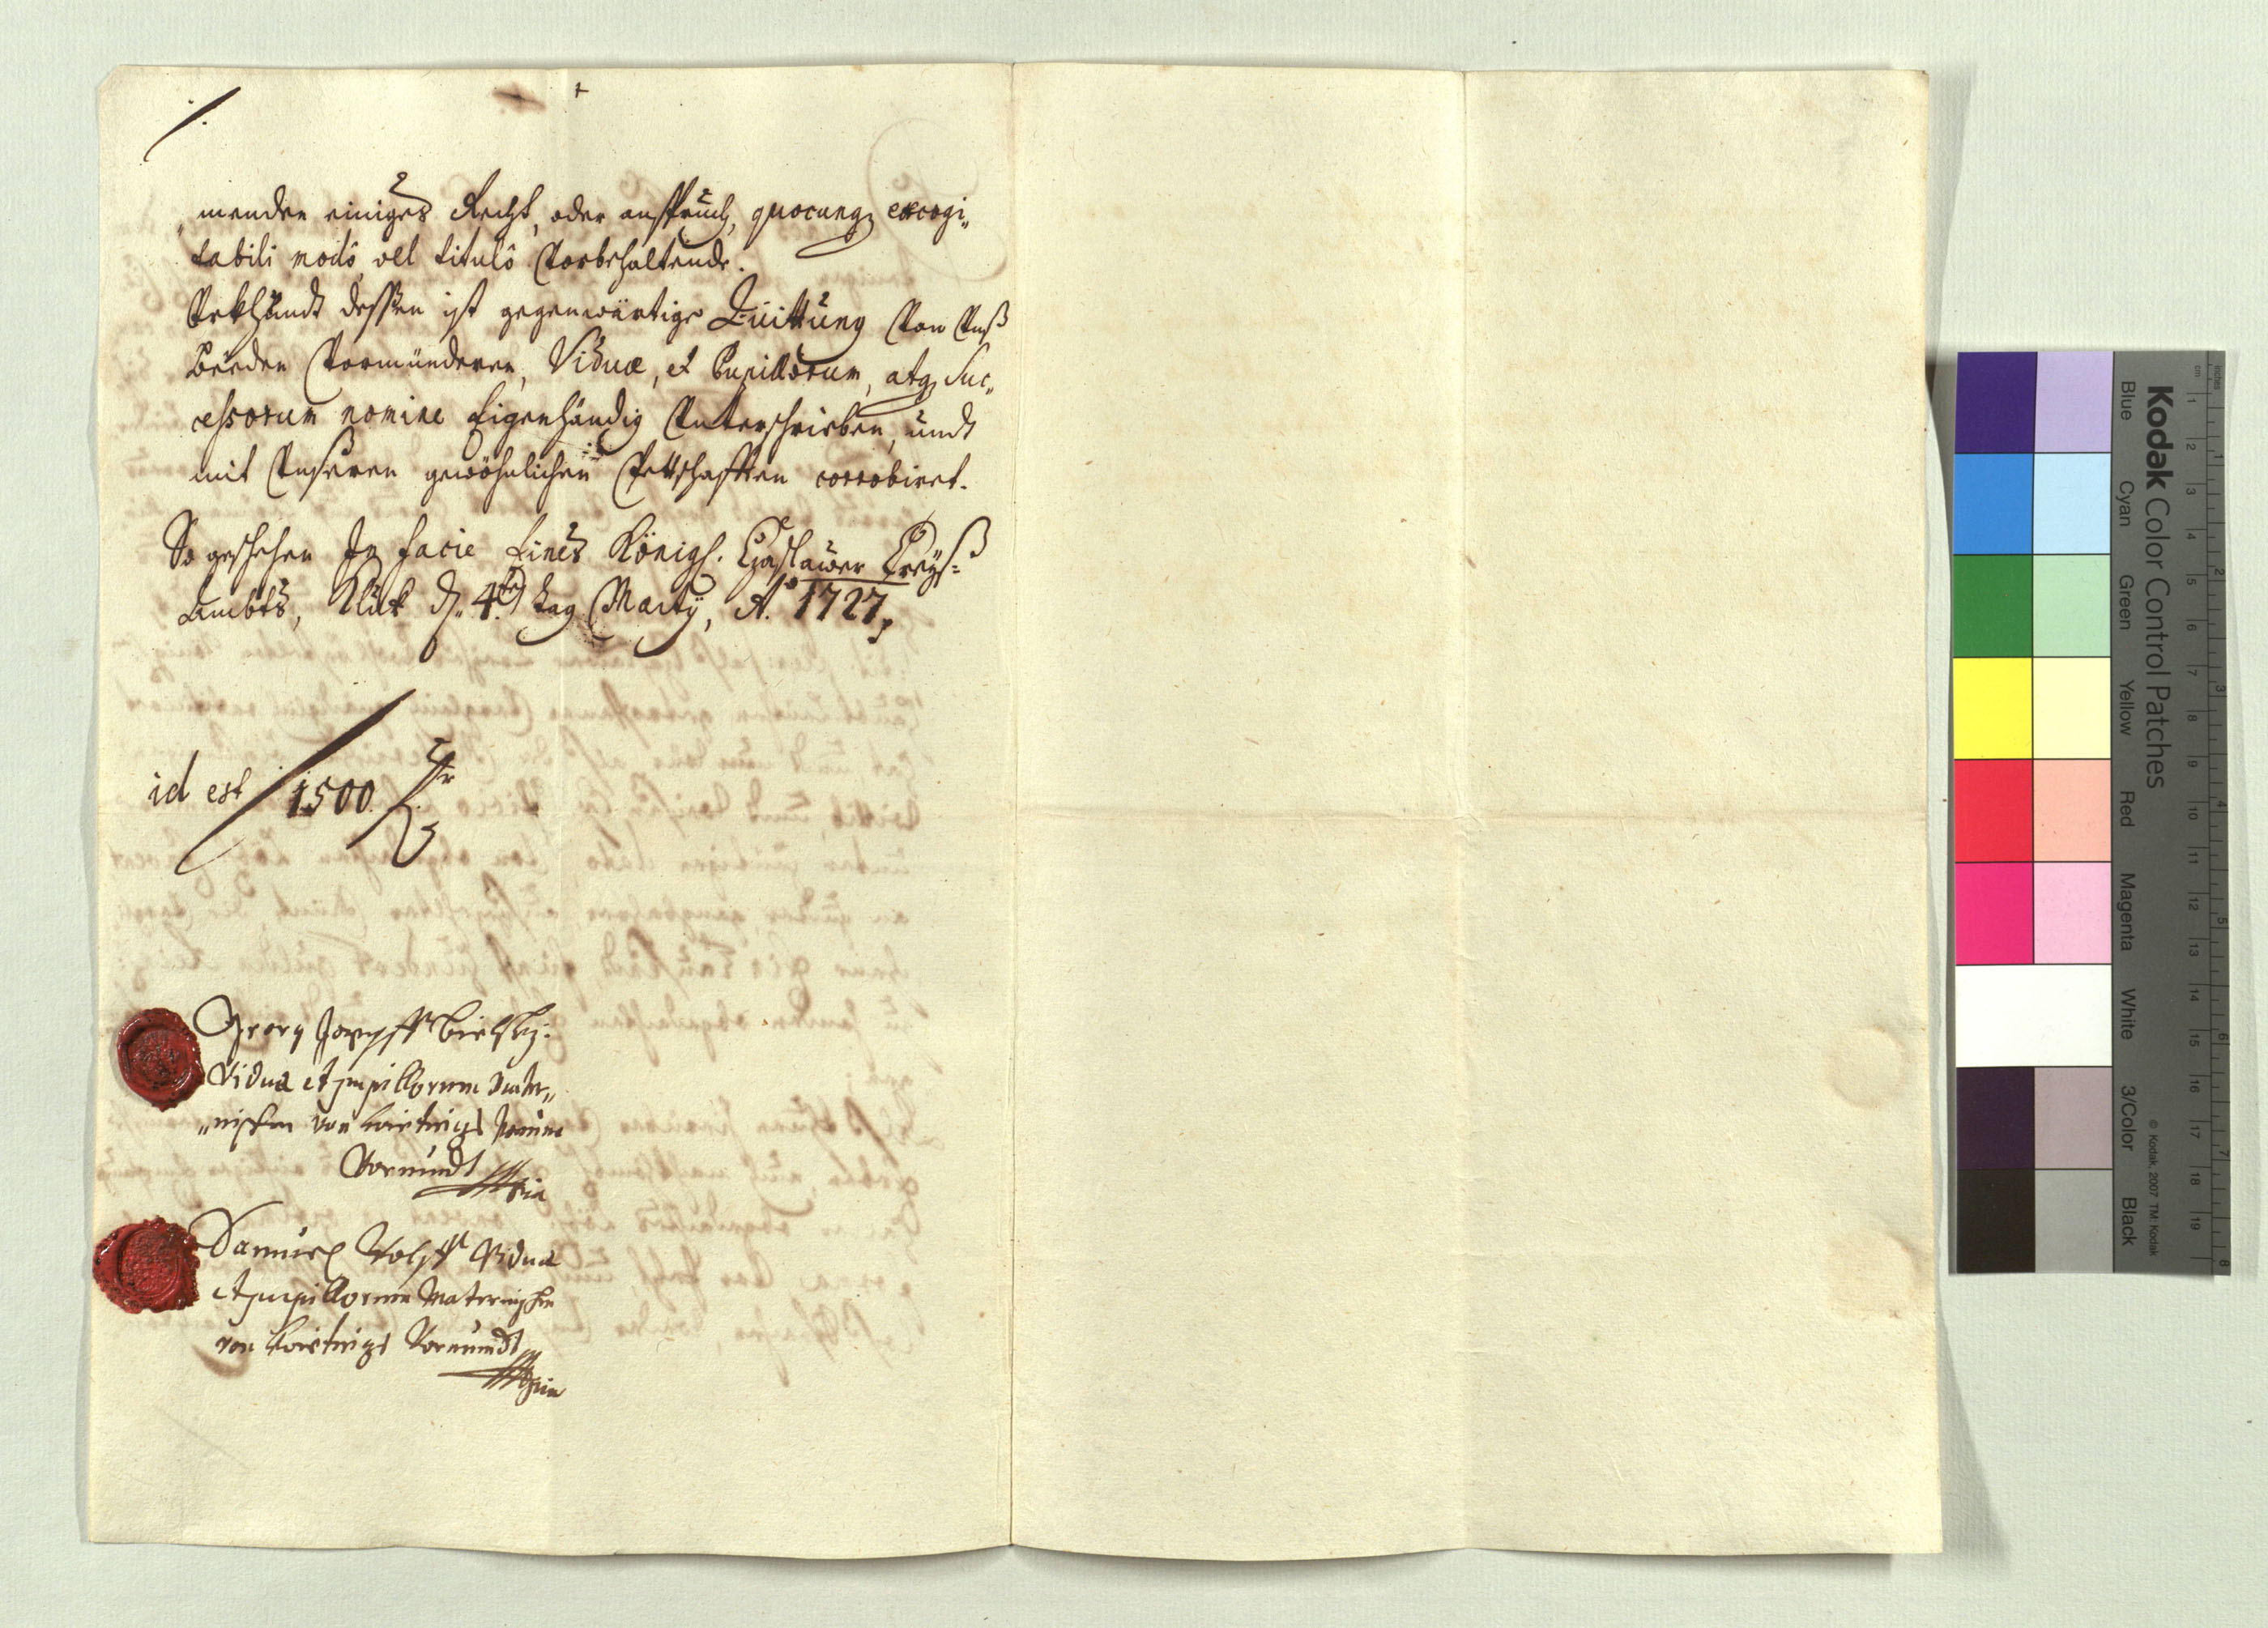 „menden einiges Recht, oder anspruch, quocunq excogi„
tabili modô, vel titulô Vorbehaltende.
Vrkhundt dessen ist gegenwärtige Quittung Von Vnß
Beeden Vormünderen, Viduæ, et Pupillorum, atq Suc„
cessorum nomine Eigenhändig Vnterschrieben, undt
mit Vnseren gewöhnlichen Pettschafften corrobiret.
So geschehen In facie Eines Königl. Czaslauer Creyß=
Ambts, den 4ten tag Marty, A.o 1727
id est 1500. f
Georg Bielsky:
Viduæ et pupillorum Mater„
„nischer von
Vormundt
Samuel Wolff Viduæ
et pupillorum Maternischer
von Vormundt
Kodak Color Control Patches
Blue Cyan Green Yellow Red Magenta White 3/Color Black
© Kodak, 2007 TM: Kodak
inches 1 2 3 4 5 6 7 8
cm 1 2 3 4 5 6 7 8 9 10 11 12 13 14 15 16 17 18 19